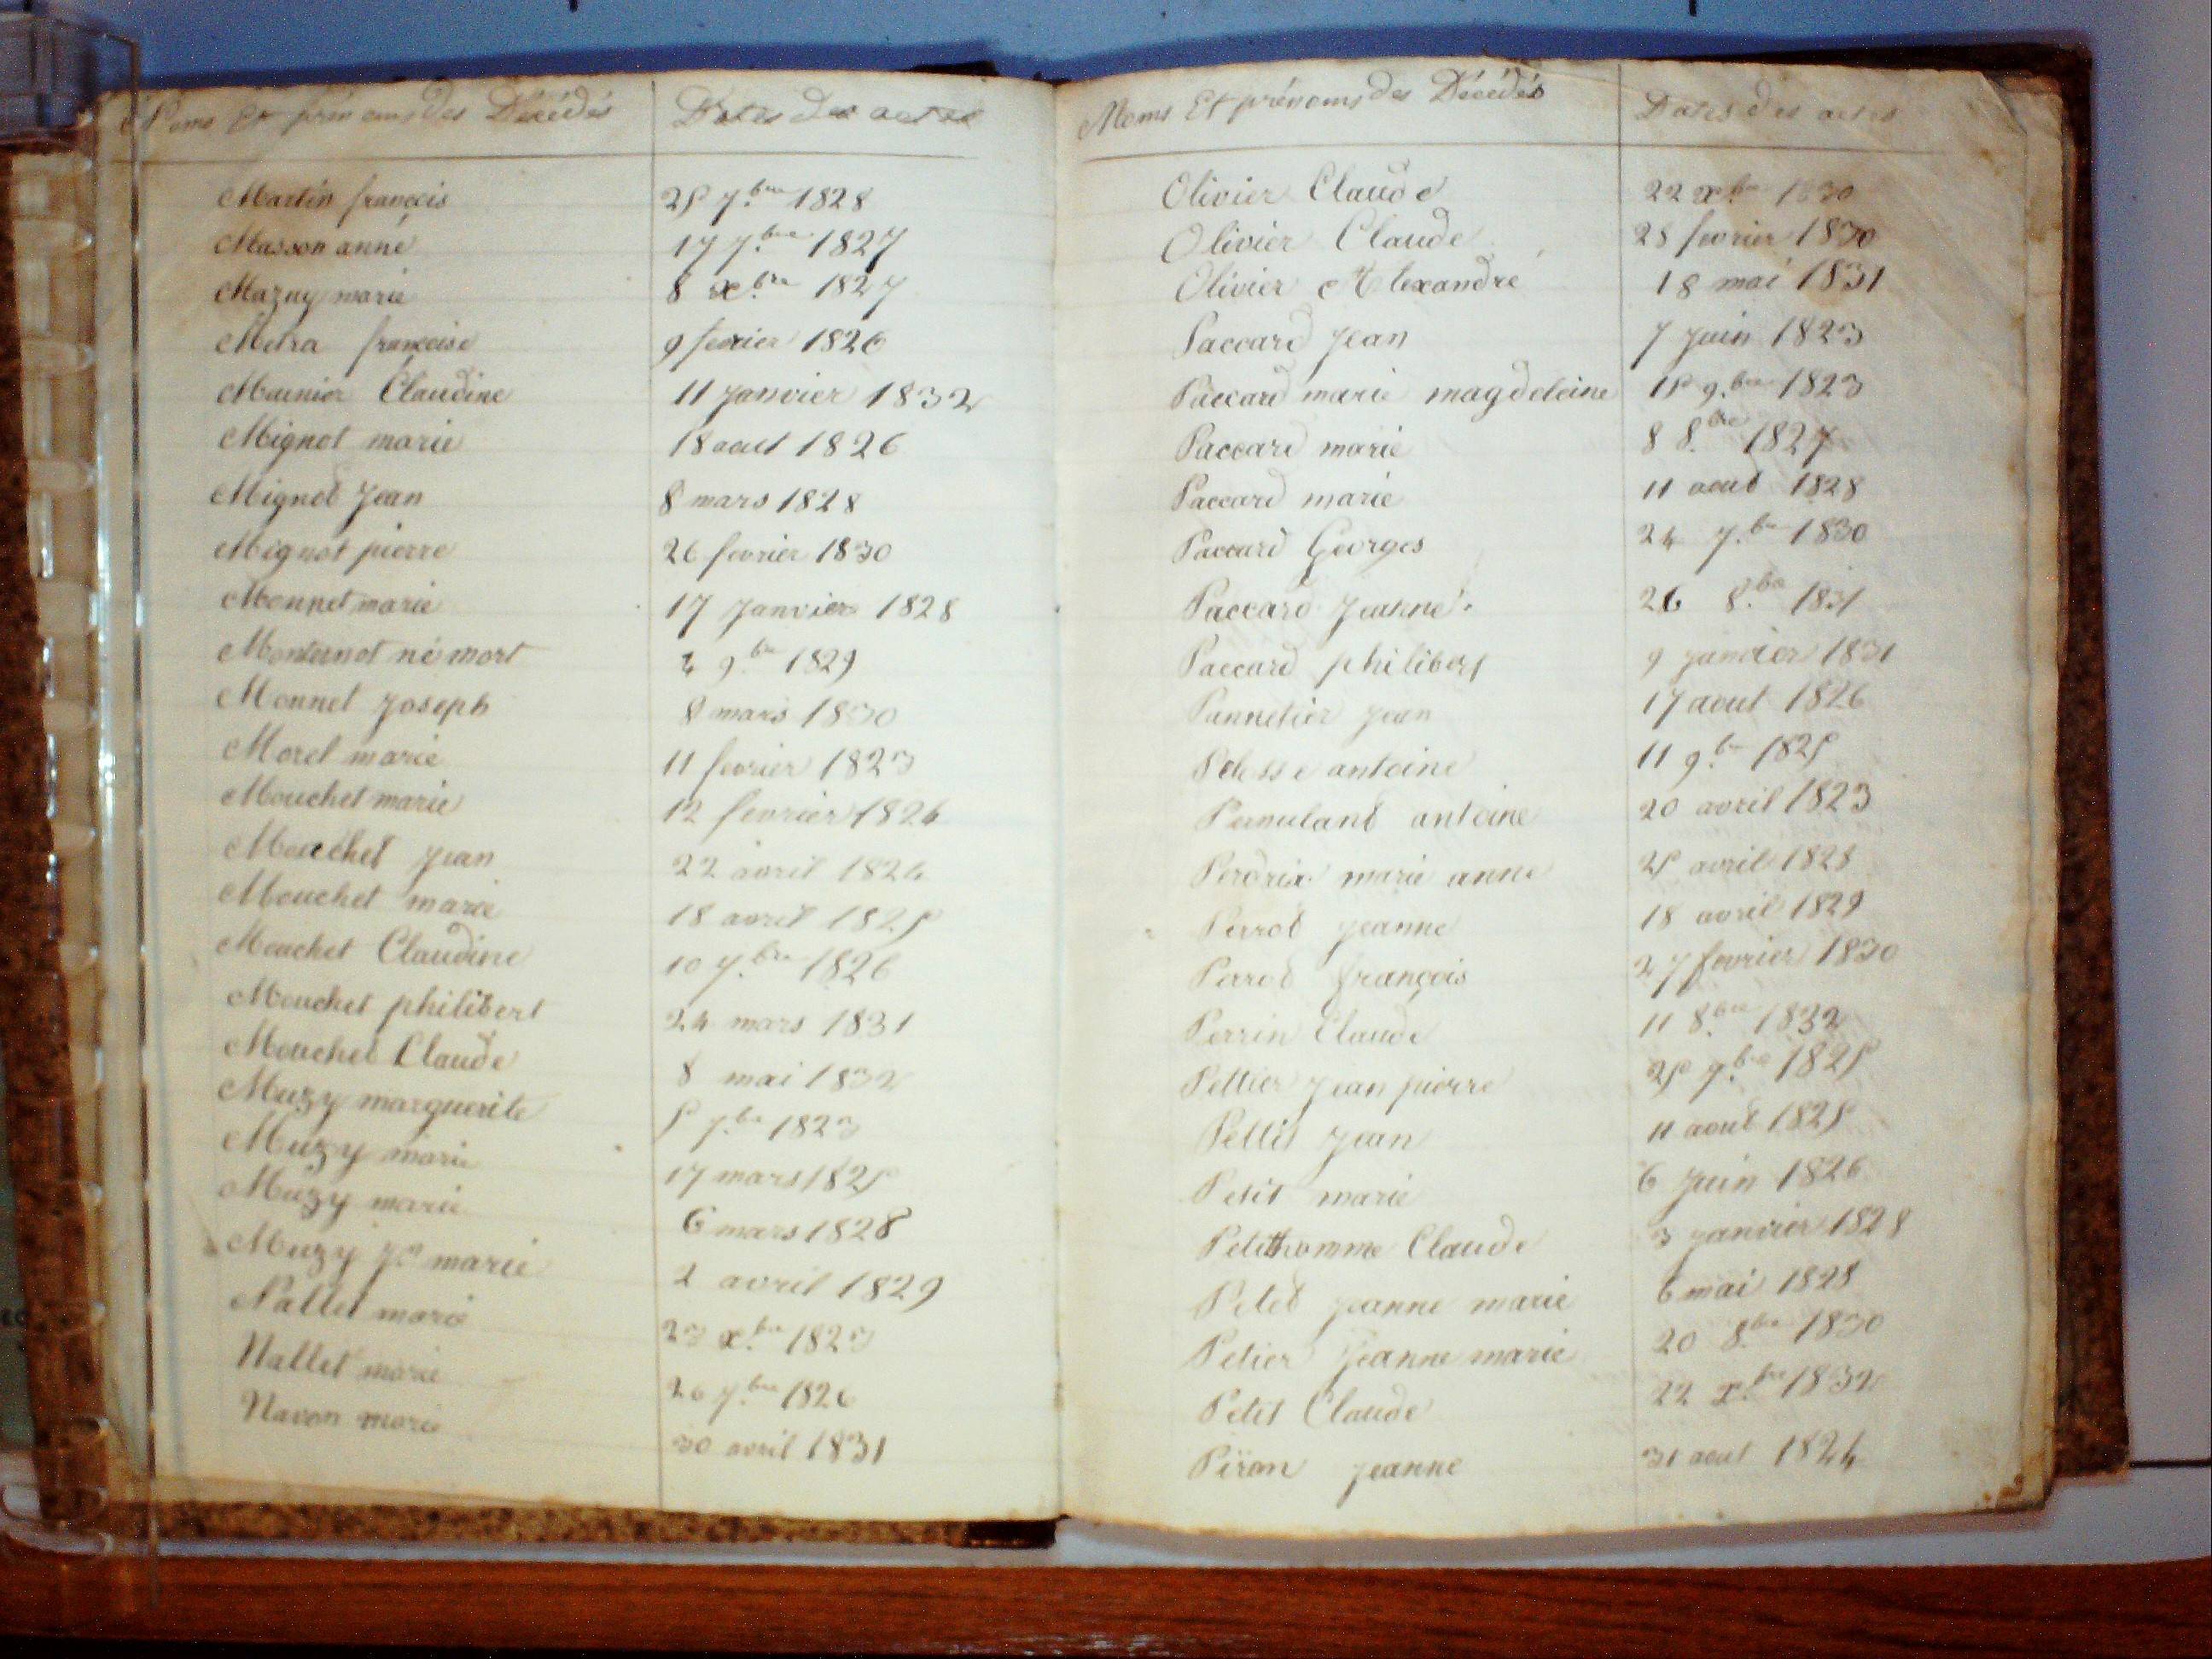 Noms Et prénoms des Décédés Dates des actes
Martin françois 25 7.bre 1828
Masson anne 17 7.bre 1827
Mazuy marie 8 xbre 1827
Metra françoise 9 fevrier 1826
Meunier Claudine 11 janvier 1832
Mignot marie 18 aout 1826
Mignot Jean 8 mars 1828
Mignot pierre 26 fevrier 1830
Monnet marie 17 janvier 1828
Monternot né mort 4 9.bre 1829
Monnet joseph 8 mars 1830
Morel marie 11 fevrier 1823
Mouchet marie 12 fevrier 1824
Mouchet jean 22 avril 1824
Mouchet marie 18 avril 1825
Mouchet Claudine 10 7.bre 1826
Mouchet philibert 24 mars 1831
Mouchet Claude 8 mai 1832
Muzy marguerite 5 7.bre 1823
Muzy marie 17 mars 1825
Muzy marie 6 mars 1828
Muzy marie 2 avril 1829
Nallet marie 23 x.bre 1823
Nallet marie 26 7.bre 1826
Navon marie 30 avril 1831
Noms Et prénoms des Décédés Dates des actes
Olivier Claude 22 x.bre 1830
Olivier Claude 28 fevrier 1830
Olivier Alexandre 18 mai 1831
Paccard Jean 7 Juin 1823
Paccard marie magdeleine 15 9.bre 1823
Paccard marie 8 8.bre 1827
Paccard marie 11 aout 1828
Paccard Georges 24 7.bre 1830
Paccard Jeanne 26 8.bre 1831
Paccard philibert 9 janvier 1831
Pannetier jean 17 aout 1826
Pelosse antoine 11 9.bre 1825
antoine 20 avril 1823
Perdrix marie anne 25 avril 1828
Perrot jeanne 18 avril 1829
Perrot françois 27 fevrier 1830
Perrin Claude 11 8.bre 1832
Peltier jean pierre 25 7.bre 1825
Pettit jean 11 aout 1825
Petit marie 6 Juin 1826
Petithomme Claude 3 janvier 1828
Petet jeanne marie 6 mai 1828
Petier jeanne marie 20 8.bre 1830
Petit Claude 22 x.bre 1832
Piron jeanne 31 aout 1824